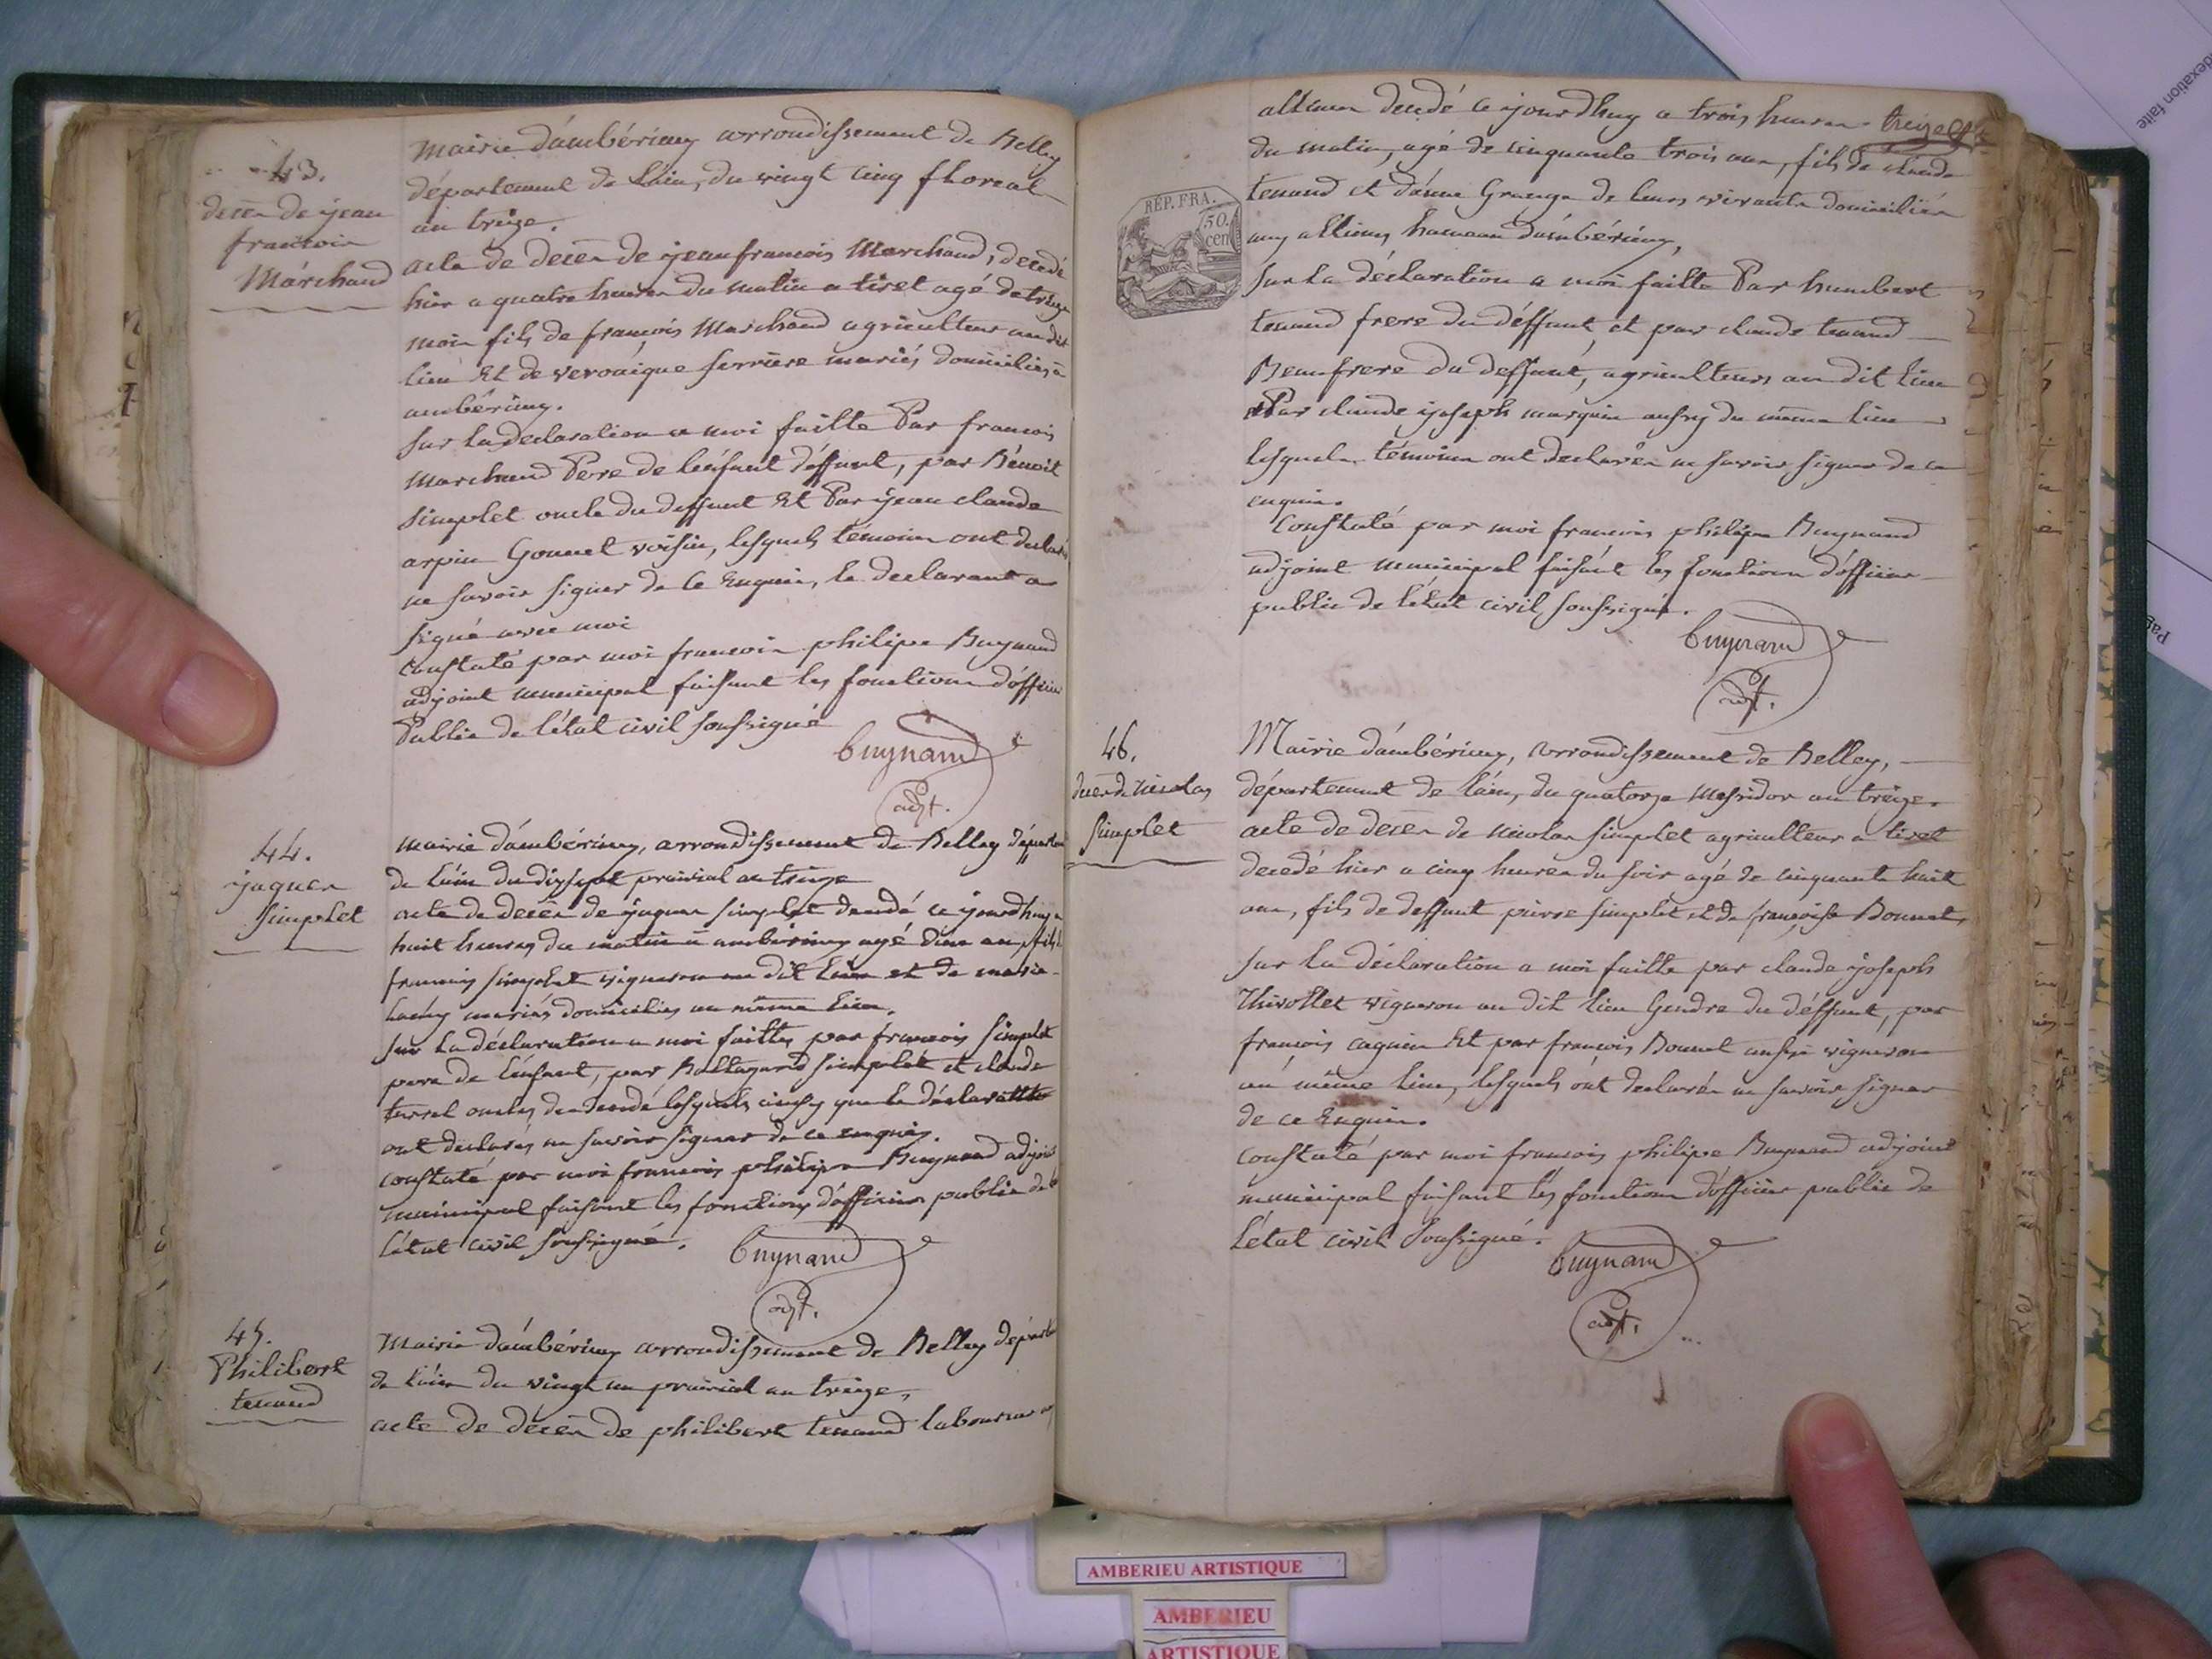 43.
decèn de jean
francoin
Marchand
Mairie d'ambérieuy arrondissement de Belley
département de Láin, du vingt cinq floreal
an treize.
acte de decèn de jean francois Marchand, decedé
hier a quatre heuren du matin a tiret agé de treize
moin fils de francois Marchand agriculteur au dit
lieu Et de veronique serriere mariés domiciliés a
ambérieuy.
sur la declaration a moi faitte Par francois
Marchand Perre de l'enfant déffunt, par Bénoit
simplet oncle du deffunt Et Par jean claude
arpin Gonnet voisin, lesquels témoinn ont declarés
ne savoir signer de ce Enquin, le declarant a
signé avec moi
Constaté par moi francoin philipe Buynand
adjoint municipal faisant les fonctionn d'officier
Public de l'état civil soussigné
Buynand
adjt.
44.
jaquen
simplet
Mairie d'ambérieuy, arrondissement de Belley départem
de láin du dixsept prairial an treize
acte de decèn de jaquen simplet decedé ce jourdhuy a
huit heures du matin a ambérieuy agé d'un an, fils de
francois simplet vigneron au dit lieu et de marie
mariés domiciliés au même lieu.
sur la déclaration a moi faitte, par francois simplet
pere de l'enfant, par Baltazard simplet et claude
terrel oncles du decedé lesquels ainsy que le déclarant
ont declarés ne savoir signer de ce enquis.
constaté par moi francois philipe Buynand adjoint
municipal faisant les fonctions d'officier public de
l'état civil soussigné.
Buynand
adjt.
45.
Philibert
tenand
Mairie d'ambérieuy arrondissement de Belley départem
de láin du vingt un prairial an treize,
acte de décèn de philibert tenand laboureur
treize
allimen decedé ce jourdhuy a trois heuren
du matin, agé de cinquante trois ann, fils de claude
tenand et d'anne Grange de leurs vivants domiciliés
au allimen hameau d'ambérieuy,
RÉP. FRA.
50.
cen
sur la déclaration a moi faitte Par humbert
tenand frere du déffunt, et par claude tenand
Beaufrere du deffunt, agriculteurs au dit lieu
et Par claude joseph marquin aussy du même lieu
lesquels témoinn ont declarén ne savoir signer de ce
enquin.
Constaté par moi francoin philipe Buynand
adjoint municipal faisant les fonctionn d'officier
public de l'état civil soussigné.
Buynand
adjt.
46.
decèn de nicolas
simplet
Mairie d'ambérieuy, arrondissement de Belley,
département de láin, du quatorze Messidor an treize.
acte de decèn de nicolas simplet agriculteur a tiret
decedé hier a cinq heuren du soir agé de cinquante huit
ann, fils de deffunt pierre simplet et de françoise Bonnet,
sur la déclaration a moi faitte par claude joseph
Thivollet vigneron au dit lieu Gendre du déffunt, par
francois cagnin Et par francois Bonnet aussi vigneron
au même lieu, lesquels ont declarén ne savoir signer
de ce Enquin.
constaté par moi francois philipe Buynand adjoint
municipal faisant les fonctionn d'officier public de
l'état civil soussigné.
Buynand
adjt.
AMBERIEU ARTISTIQUE
AMBERIEU
ARTISTIQUE
dexation faite